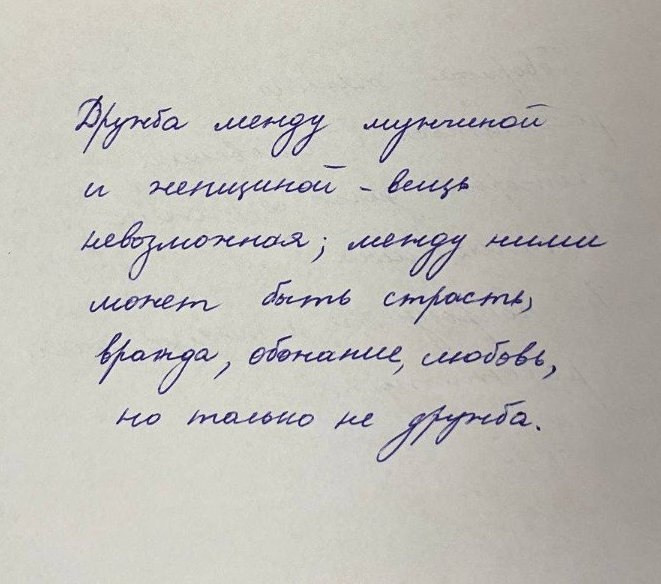 Дружба между мужчиной
и женщиной - вещь
невозможная; между ними
может быть страсть,
вражда, обожание, любовь,
но только не дружба.